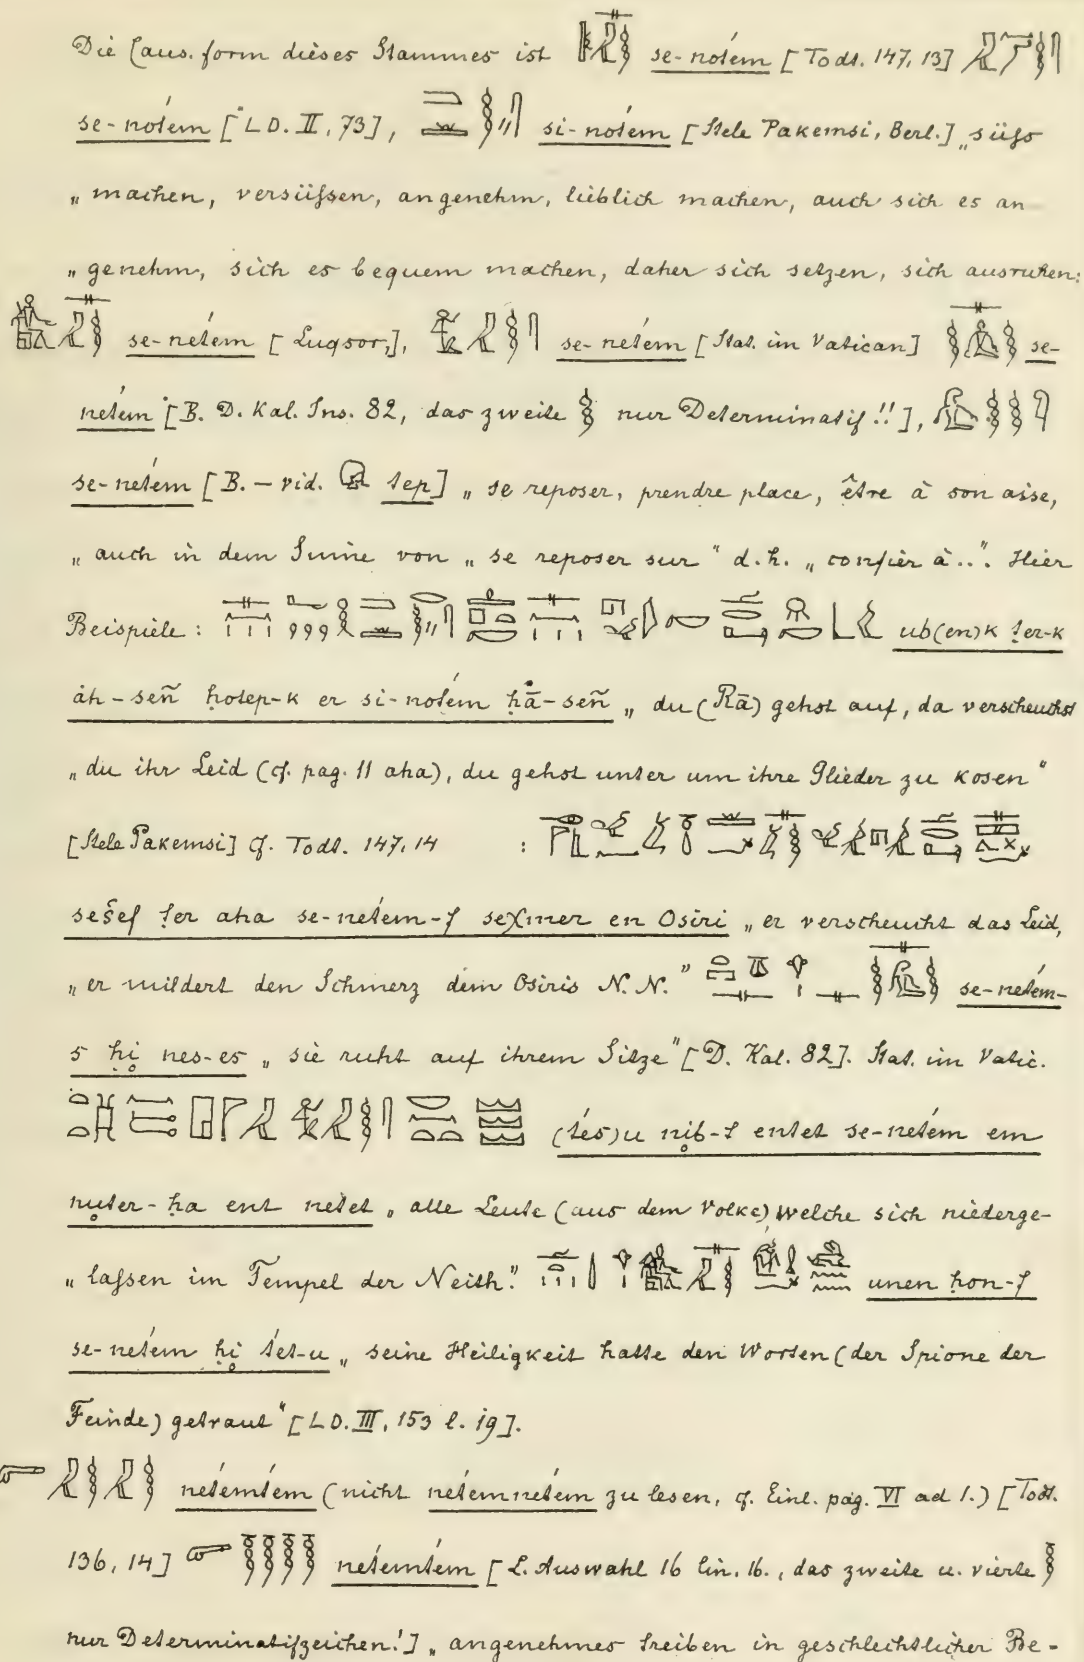 Die Caus. form dieses Stammes ist se-noťem [Todt. 147, 13]
se-noťem [LD. II, 73], si-noťem [Stele Pakemsi, Berl.] „süſs
„machen, versüſsen, angenehm, lieblich machen, auch sich es an
„genehm, sich es bequem machen, daher sich setzen, sich ausruhen:
se-neťem [Luqsor,], se-neťem [Stat. im Vatican] se-
neťem [B. D. Kal. Ins. 82, das zweite nur Determinatif!!],
se-neťem [B. – vid. tep] „se reposer, prendre place, être à son aise,
„auch in dem Sinne von „se reposer sur" d.h. „confier à..". Hier
Beispiele: ub(en)k ter-k
åh-señ ḥotep-k er si-noťem ḥā-señ „du (Rā) gehst auf, da verscheuchst
„du ihr Leid (cf. pag. 11 aha), du gehst unter um ihre Glieder zu kosen"
[Stele Pakemsi] cf. Todt. 147, 14 :
sešef ter aha se-neťem-f seχmer en Osiri „er verscheucht das Leid,
„er mildert den Schmerz dem Osiris N. N." se-neťem-
s ḥi nes-es „sie ruht auf ihrem Sitze" [D. Kal. 82]. Stat. im Vatic.
(ťes)u nib-f entet se-neťem em
nuter-ḥa ent neťet „alle Leute (aus dem Volke) welche sich niederge-
„laſsen im Tempel der Neith." unen ḥon-f
se-neťem ḥi ťet-u „seine Heiligkeit hatte den Worten (der Spione der
Feinde) getraut" [LD. III, 153 l. 19].
neťemťem (nicht neťemneťem zu lesen, cf. Einl. pag. VI ad 1.) [Todt.
136, 14] neťemťem [L. Auswahl 16 lin. 16., das zweite u. vierte
nur Determinatifzeichen!] „angenehmes treiben in geschlechtlicher Be-